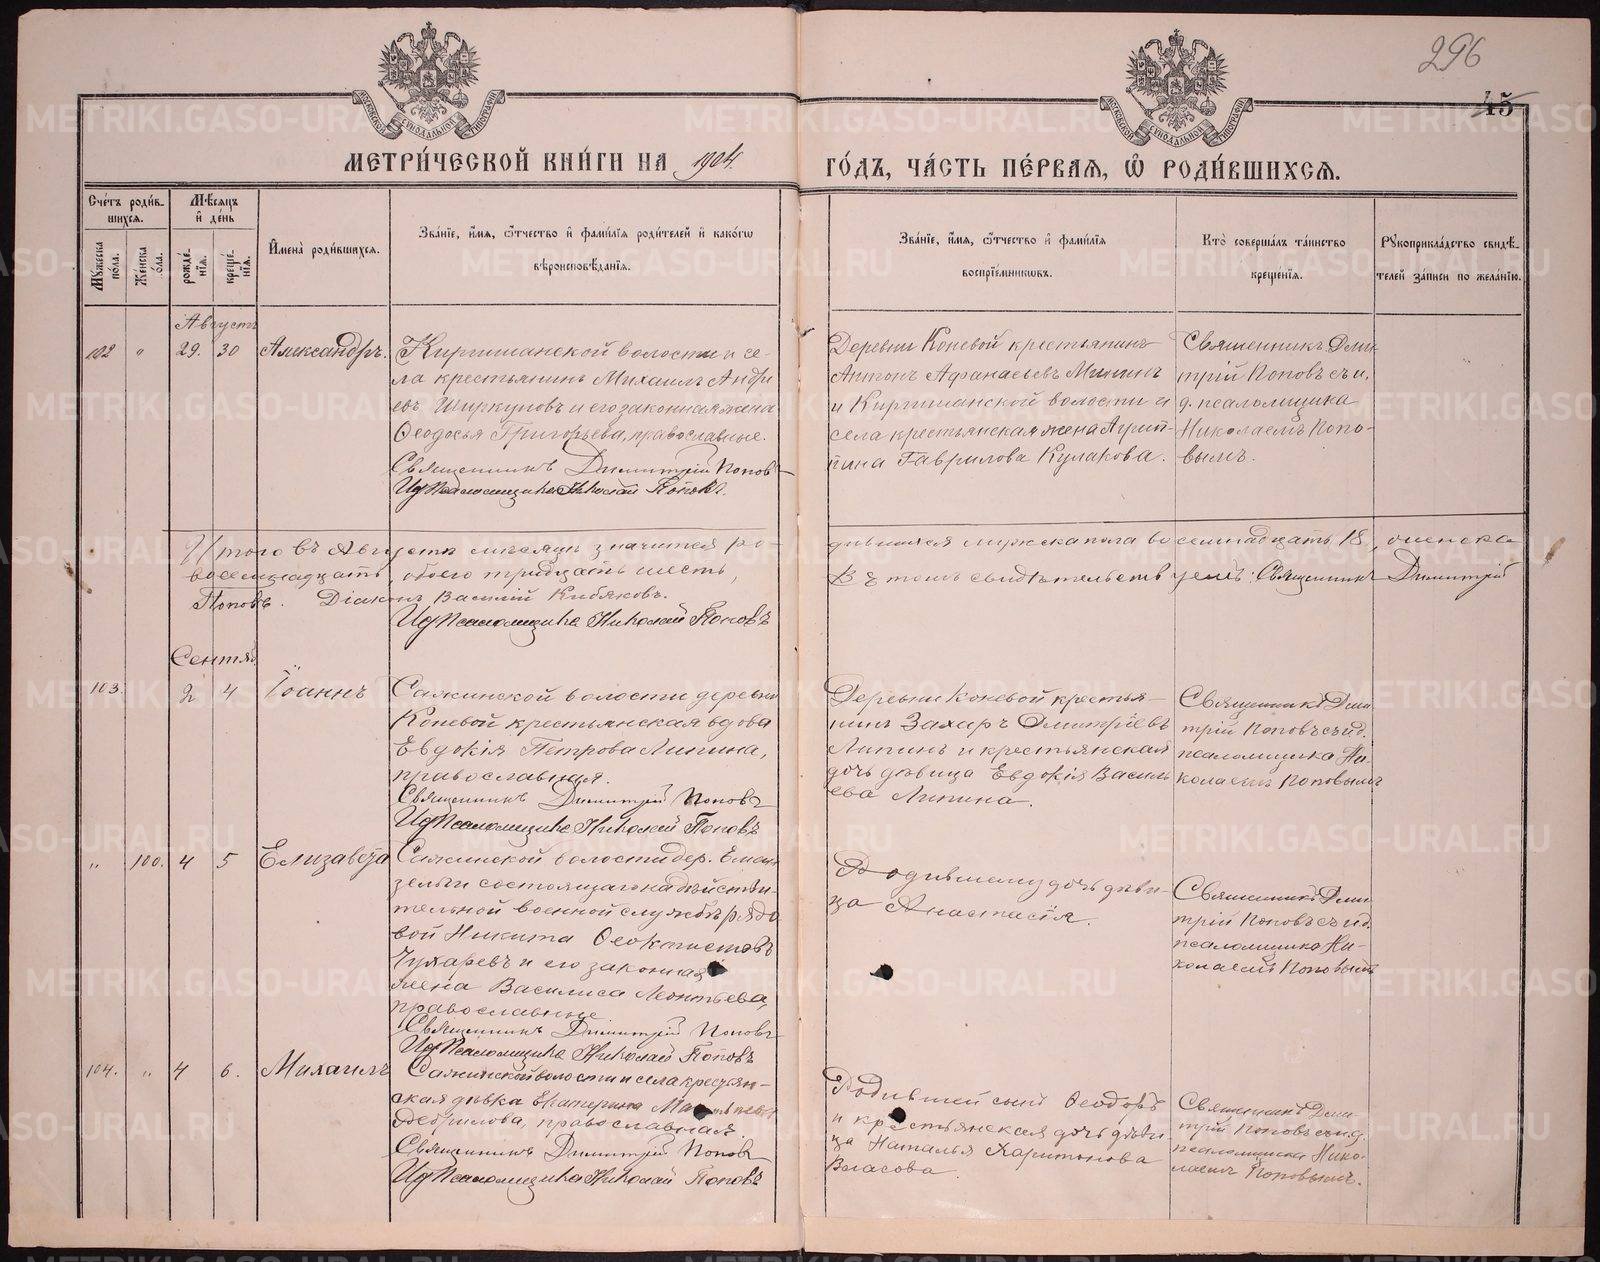 296
45
МЕТРИ́ЧЕСКОЙ КНИ́ГИ НА 1904. ГО́ДЪ, ЧА́СТЬ ПЕ́РВАЯ, Ѡ РОДИ́ВШИХСЯ.
Сче́тъ роди́в-
шихся.
Му́жеска по́ла.
Же́нска по́ла.
Мѣ́сяцъ и де́нь
рожде́-нія.
креще́-нія.
Имена̀ роди́вшихся.
Зва́ніе, и́мя, ѻ҆́тчество и фами́лія роди́телей и како́гѡ
вѣроисповѣ́данія.
Зва́ніе, и́мя, ѻ҆́тчество и фами́лія
воспріе́мниковъ.
Кто̀ соверша́лъ та́инство
креще́нія.
Рукоприкла́дство свидѣ́-
телей за́писи по жела́нію.
Августъ
102 " 29. 30 Александръ.
Киргишанской волости и се-
ла крестьянинъ Михаилъ Андре
евъ Ширкуновъ и его законная жена
Ѳеодосья Григорьева, православные.
Священникъ Димитрій Поповъ
Ид Псаломщика Николай Поповъ.
Деревни Коневой крестьянинъ
Антонъ Афанасьевъ
и Киргишанской волости и
села крестьянская жена Агрип-
пина Гаврилова Кулакова.
Священникъ Дми-
трій Поповъ съ и.
д. псаломщика
Николаемъ Попо-
вымъ.
Итого въ Августѣ мѣсяцѣ значится ро-
дившихся мужска пола восемнадцать 18, женска
восемнадцать, обоего тридцать шесть,
Въ томъ свидѣтельствуемъ: Священникъ Димитрій
Поповъ. Діаконъ Василій Кибяковъ.
Ид Псаломщика Николай Поповъ
Сентяб.
103. 2 4 Іоаннъ
Сажинской волости деревни
Коневой крестьянская вдова
Евдокія Петрова Липина,
православная.
Священникъ Димитрій Поповъ
Ид Псаломщика Николай Поповъ
Деревни Коневой крестья-
нинъ Захаръ Дмитріевъ
Липинъ и крестьянская
дочь дѣвица Евдокія Василь
ева Липина.
Священникъ Дми
трій Поповъ съ ид.
псаломщика Ни-
колаемъ Поповымъ
" 100. 4 5 Елизавета
Сажинской волости дер.
состоящаго на дѣйстви-
тельной военной службѣ рядо
вой Никита Ѳеоктистовъ
Чухаревъ и его законная
жена Василиса Леонтьева,
православные
Священникъ Димитрій Поповъ
Ид Псаломщика Николай Поповъ
дочь дѣви-
ца Анастасія.
Священникъ Дми
трій Поповъ съ ид.
псаломщика Ни-
колаемъ Поповымъ
104. " 4 6. Михаилъ
Сажинской волости и села крестьян-
ская дѣвка Екатерина
православная.
Священникъ Димитрій Поповъ
Ид Псаломщика Николай Поповъ
сынъ Ѳеодоръ
и крестьянская дочь дѣви-
ца Наталья Харитонова
Власова.
Священникъ Дми-
трій Поповъ съ ид.
псаломщика Нико-
лаемъ Поповымъ.
METRIKI.GASO-URAL.RU